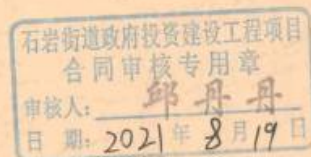 石岩街道政府投资建设工程项目
合同审核专用章
审核人：邱丹丹
日 期：2021 年 8 月 19 日